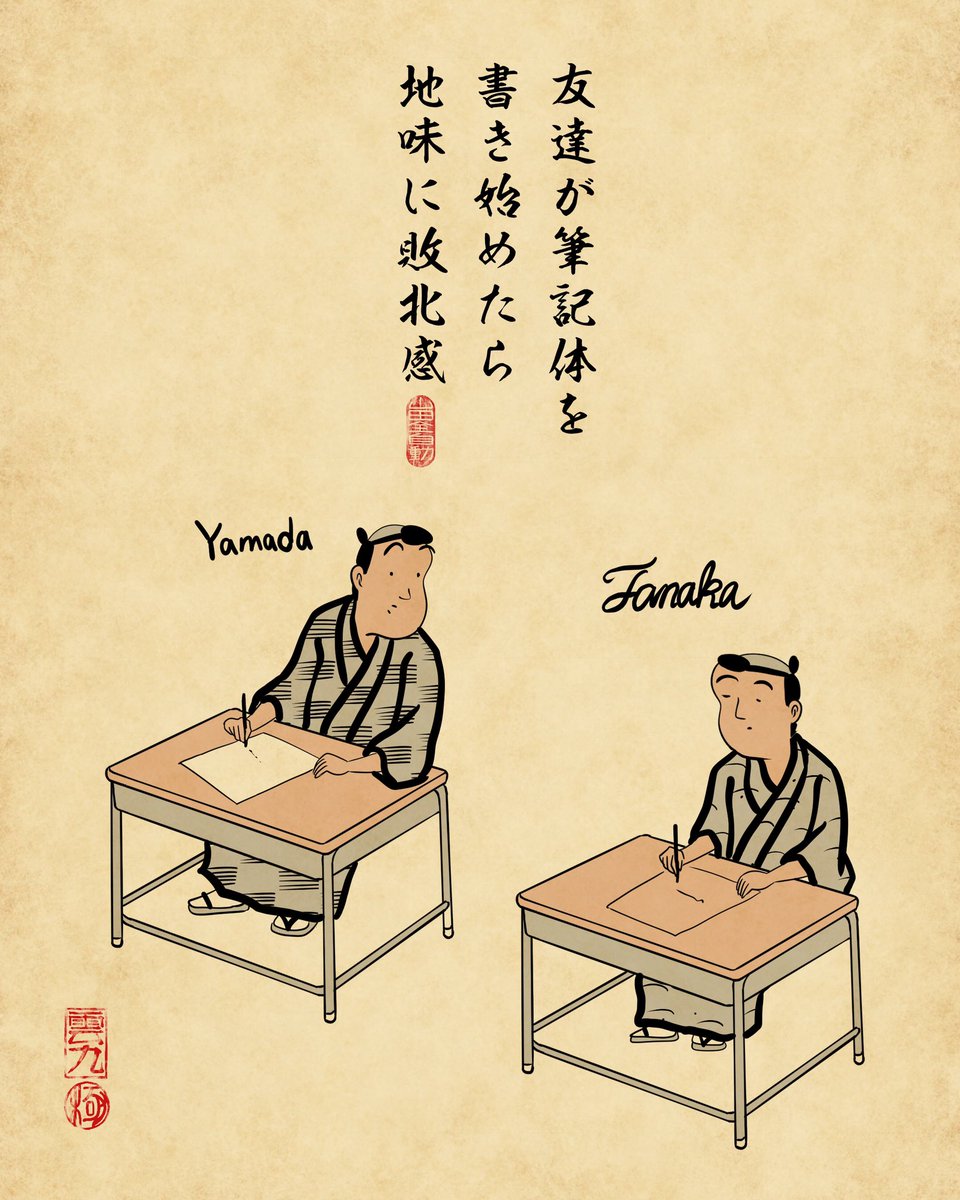 友達が筆記体を
書き始めたら
地味に敗北感
Yamada
Tanaka